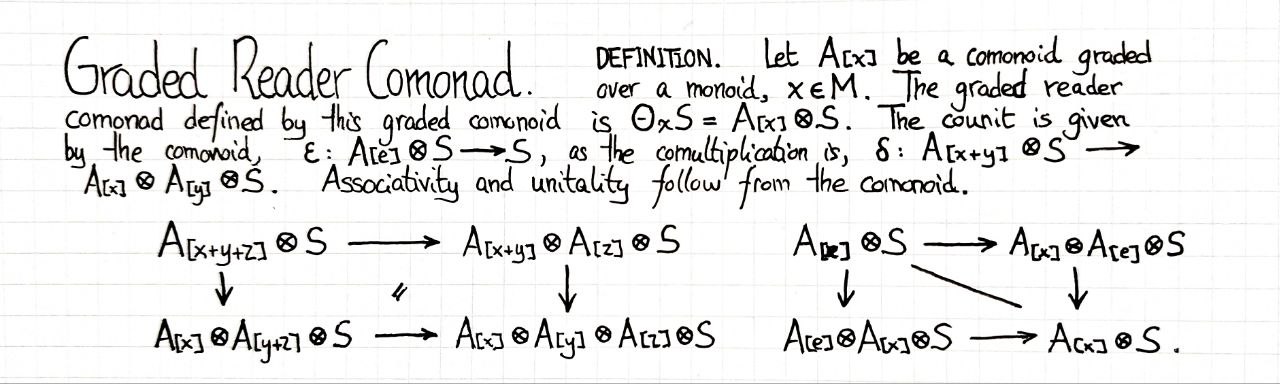 Graded Reader Comonad. DEFINITION. Let A[x] be a comonoid graded
over a monoid, x∈M. The graded reader
comonad defined by this graded comonoid is ΘₓS = A[x]⊗S. The counit is given
by the comonoid, ε: A[e]⊗S→S, as the comultiplication is, δ: A[x+y]⊗S →
A[x]⊗A[y]⊗S. Associativity and unitality follow from the comonoid.
A[x+y+z]⊗S → A[x+y]⊗A[z]⊗S A[x]⊗S → A[x]⊗A[e]⊗S
↓ 〃 ↓ ↓ ↓
A[x]⊗A[y+z]⊗S → A[x]⊗A[y]⊗A[z]⊗S A[e]⊗A[x]⊗S → A[x]⊗S.